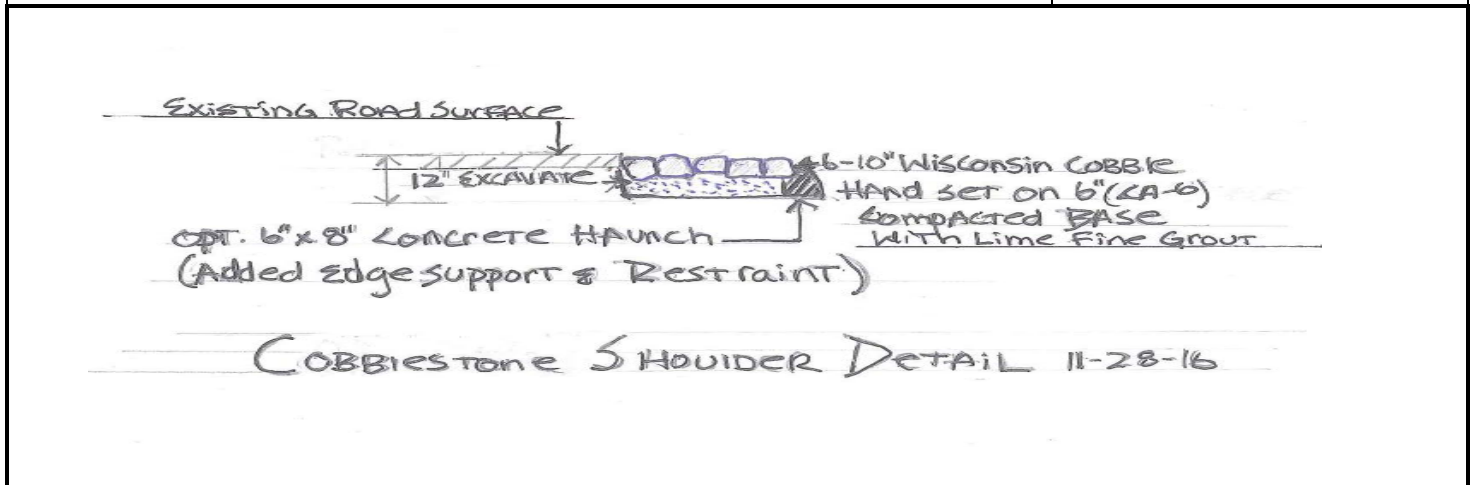 Existing Road Surface
12" Excavate
6-10" Wisconsin Cobble
Hand set on 6" (CA-6)
Compacted Base
With Lime Fine Grout
OPT. 6" x 8" Concrete Haunch
(Added Edge Support & Restraint)
Cobblestone Shoulder Detail 11-28-16